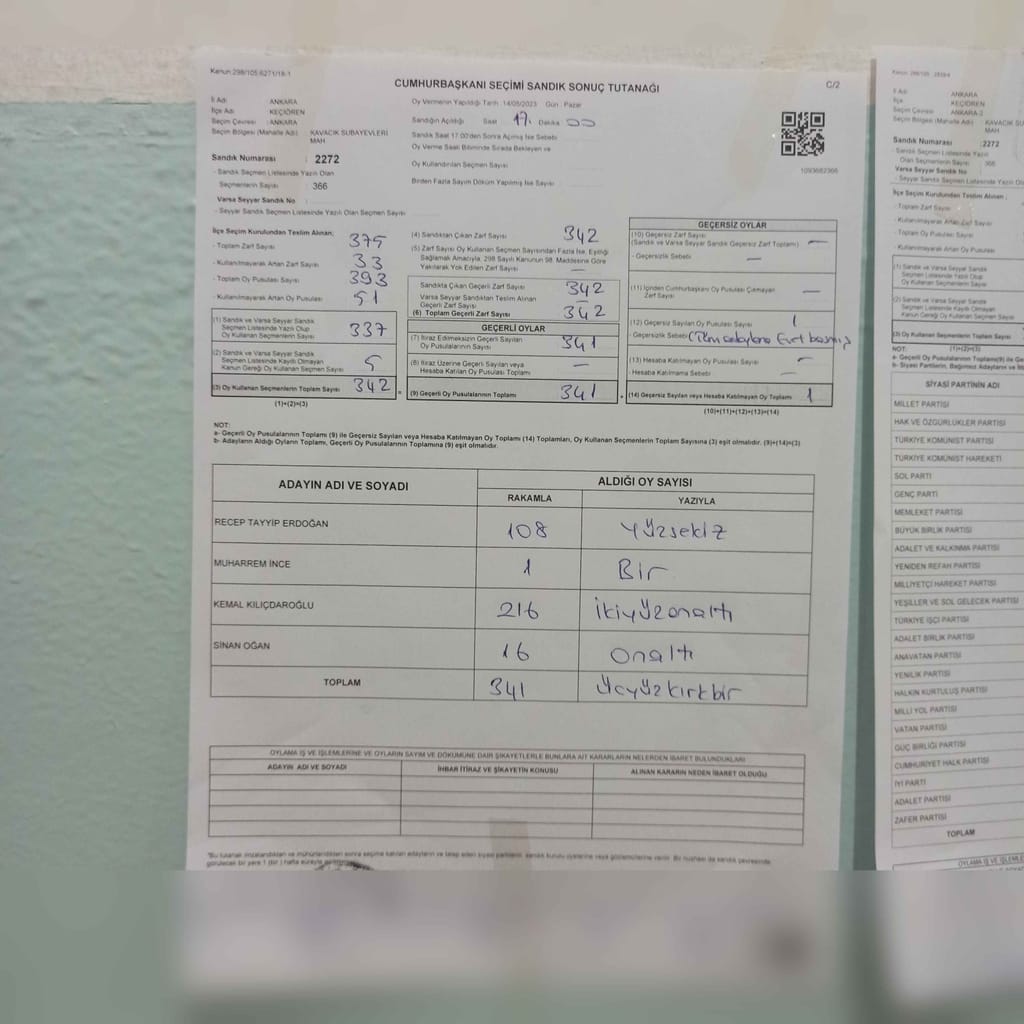 Kanun 298/105 6271/18-1
CUMHURBAŞKANI SEÇİMİ SANDIK SONUÇ TUTANAĞI
C/2
İl Adı ANKARA
İlçe Adı KEÇİÖREN
Seçim Çevresi ANKARA
Seçim Bölgesi (Mahalle Adı) KAVACIK SUBAYEVLERİ MAH
Sandık Numarası 2272
- Sandık Seçmen Listesinde Yazılı Olan
Seçmenlerin Sayısı 366
Varsa Seyyar Sandık No
- Seyyar Sandık Seçmen Listesinde Yazılı Olan Seçmen Sayısı
Oy Vermenin Yapıldığı Tarih : 14/05/2023 Gün : Pazar
Sandığın Açıldığı Saat 17. Dakika 00
Sandık Saat 17.00'den Sonra Açılmış İse Sebebi
Oy Verme Saati Bitiminde Sırada Bekleyen ve
Oy Kullandırılan Seçmen Sayısı
Birden Fazla Sayım Döküm Yapılmış İse Sayısı
1093682366
İlçe Seçim Kurulundan Teslim Alınan;
- Toplam Zarf Sayısı 375
- Kullanılmayarak Artan Zarf Sayısı 33
- Toplam Oy Pusulası Sayısı 393
- Kullanılmayarak Artan Oy Pusulası 51
(1) Sandık ve Varsa Seyyar Sandık
Seçmen Listesinde Yazılı Olup
Oy Kullanan Seçmenlerin Sayısı 337
(2) Sandık ve Varsa Seyyar Sandık
Seçmen Listesinde Kayıtlı Olmayan
Kanun Gereği Oy Kullanan Seçmen Sayısı 5
(3) Oy Kullanan Seçmenlerin Toplam Sayısı 342 =
(1)+(2)=(3)
(4) Sandıktan Çıkan Zarf Sayısı 342
(5) Zarf Sayısı Oy Kullanan Seçmen Sayısından Fazla İse, Eşitliği
Sağlamak Amacıyla, 298 Sayılı Kanunun 98. Maddesine Göre
Yakılarak Yok Edilen Zarf Sayısı —
Sandıkta Çıkan Geçerli Zarf Sayısı 342
Varsa Seyyar Sandıktan Teslim Alınan
Geçerli Zarf Sayısı —
(6) Toplam Geçerli Zarf Sayısı 342
GEÇERLİ OYLAR
(7) İtiraz Edilmeksizin Geçerli Sayılan
Oy Pusulalarının Sayısı 341
(8) İtiraz Üzerine Geçerli Sayılan veya
Hesaba Katılan Oy Pusulası Toplamı —
(9) Geçerli Oy Pusulalarının Toplamı 341 +
GEÇERSİZ OYLAR
(10) Geçersiz Zarf Sayısı
(Sandık ve Varsa Seyyar Sandık Geçersiz Zarf Toplamı) —
- Geçersizlik Sebebi —
(11) İçinden Cumhurbaşkanı Oy Pusulası Çıkmayan
Zarf Sayısı —
(12) Geçersiz Sayılan Oy Pusulası Sayısı 1
- Geçersizlik Sebebi (Tüm adaylara Evet basmış)
(13) Hesaba Katılmayan Oy Pusulası Sayısı —
- Hesaba Katılmama Sebebi —
(14) Geçersiz Sayılan veya Hesaba Katılmayan Oy Toplamı 1
(10)+(11)+(12)+(13)=(14)
NOT:
a- Geçerli Oy Pusulalarının Toplamı (9) ile Geçersiz Sayılan veya Hesaba Katılmayan Oy Toplamı (14) Toplamları, Oy Kullanan Seçmenlerin Toplam Sayısına (3) eşit olmalıdır. (9)+(14)=(3)
b- Adayların Aldığı Oyların Toplamı, Geçerli Oy Pusulalarının Toplamına (9) eşit olmalıdır.
ADAYIN ADI VE SOYADI ALDIĞI OY SAYISI
RAKAMLA YAZIYLA
RECEP TAYYİP ERDOĞAN 108 Yüzsekiz
MUHARREM İNCE 1 Bir
KEMAL KILIÇDAROĞLU 216 ikiyüzonaltı
SİNAN OĞAN 16 onaltı
TOPLAM 341 üçyüzkırkbir
OYLAMA İŞ VE İŞLEMLERİNE VE OYLARIN SAYIM VE DÖKÜMÜNE DAİR ŞİKAYETLERLE BUNLARA AİT KARARLARIN NELERDEN İBARET BULUNDUKLARI
ADAYIN ADI VE SOYADI İHBAR İTİRAZ VE ŞİKAYETİN KONUSU ALINAN KARARIN NEDEN İBARET OLDUĞU
İl Adı ANKARA
İlçe KEÇİÖREN
Seçim Çevresi ANKARA 3
Seçim Bölgesi (Mahalle Adı) KAVACIK
MAH
Sandık Numarası 2272
- Sandık Seçmen Listesinde Yazılı
Olan Seçmenlerin Sayısı
Varsa Seyyar Sandık No
İlçe Seçim Kurulundan Teslim Alınan ;
- Toplam Zarf Sayısı
- Kullanılmayarak Artan Zarf
- Toplam Oy Pusulası
- Kullanılmayarak Artan Oy Pusulası
(1) Sandık ve Varsa Seyyar Sandık
Seçmen Listesinde Yazılı Olup
Oy Kullanan Seçmenlerin Sayısı
(2) Sandık ve Varsa Seyyar Sandık
Seçmen Listesinde Kayıtlı Olmayan
Kanun Gereği Oy Kullanan Seçmen Sayısı
(3) Oy Kullanan Seçmenlerin Toplam
(1)+(2)=(3)
NOT:
SİYASİ PARTİNİN ADI
MİLLET PARTİSİ
HAK VE ÖZGÜRLÜKLER PARTİSİ
TÜRKİYE KOMÜNİST PARTİSİ
TÜRKİYE KOMÜNİST HAREKETİ
SOL PARTİ
GENÇ PARTİ
MEMLEKET PARTİSİ
BÜYÜK BİRLİK PARTİSİ
ADALET VE KALKINMA PARTİSİ
YENİDEN REFAH PARTİSİ
MİLLİYETÇİ HAREKET PARTİSİ
YEŞİLLER VE SOL GELECEK PARTİSİ
TÜRKİYE İŞÇİ PARTİSİ
ADALET BİRLİK PARTİSİ
ANAVATAN PARTİSİ
YENİLİK PARTİSİ
HALKIN KURTULUŞ PARTİSİ
MİLLİ YOL PARTİSİ
VATAN PARTİSİ
GÜÇ BİRLİĞİ PARTİSİ
CUMHURİYET HALK PARTİSİ
İYİ PARTİ
ADALET PARTİSİ
ZAFER PARTİSİ
TOPLAM